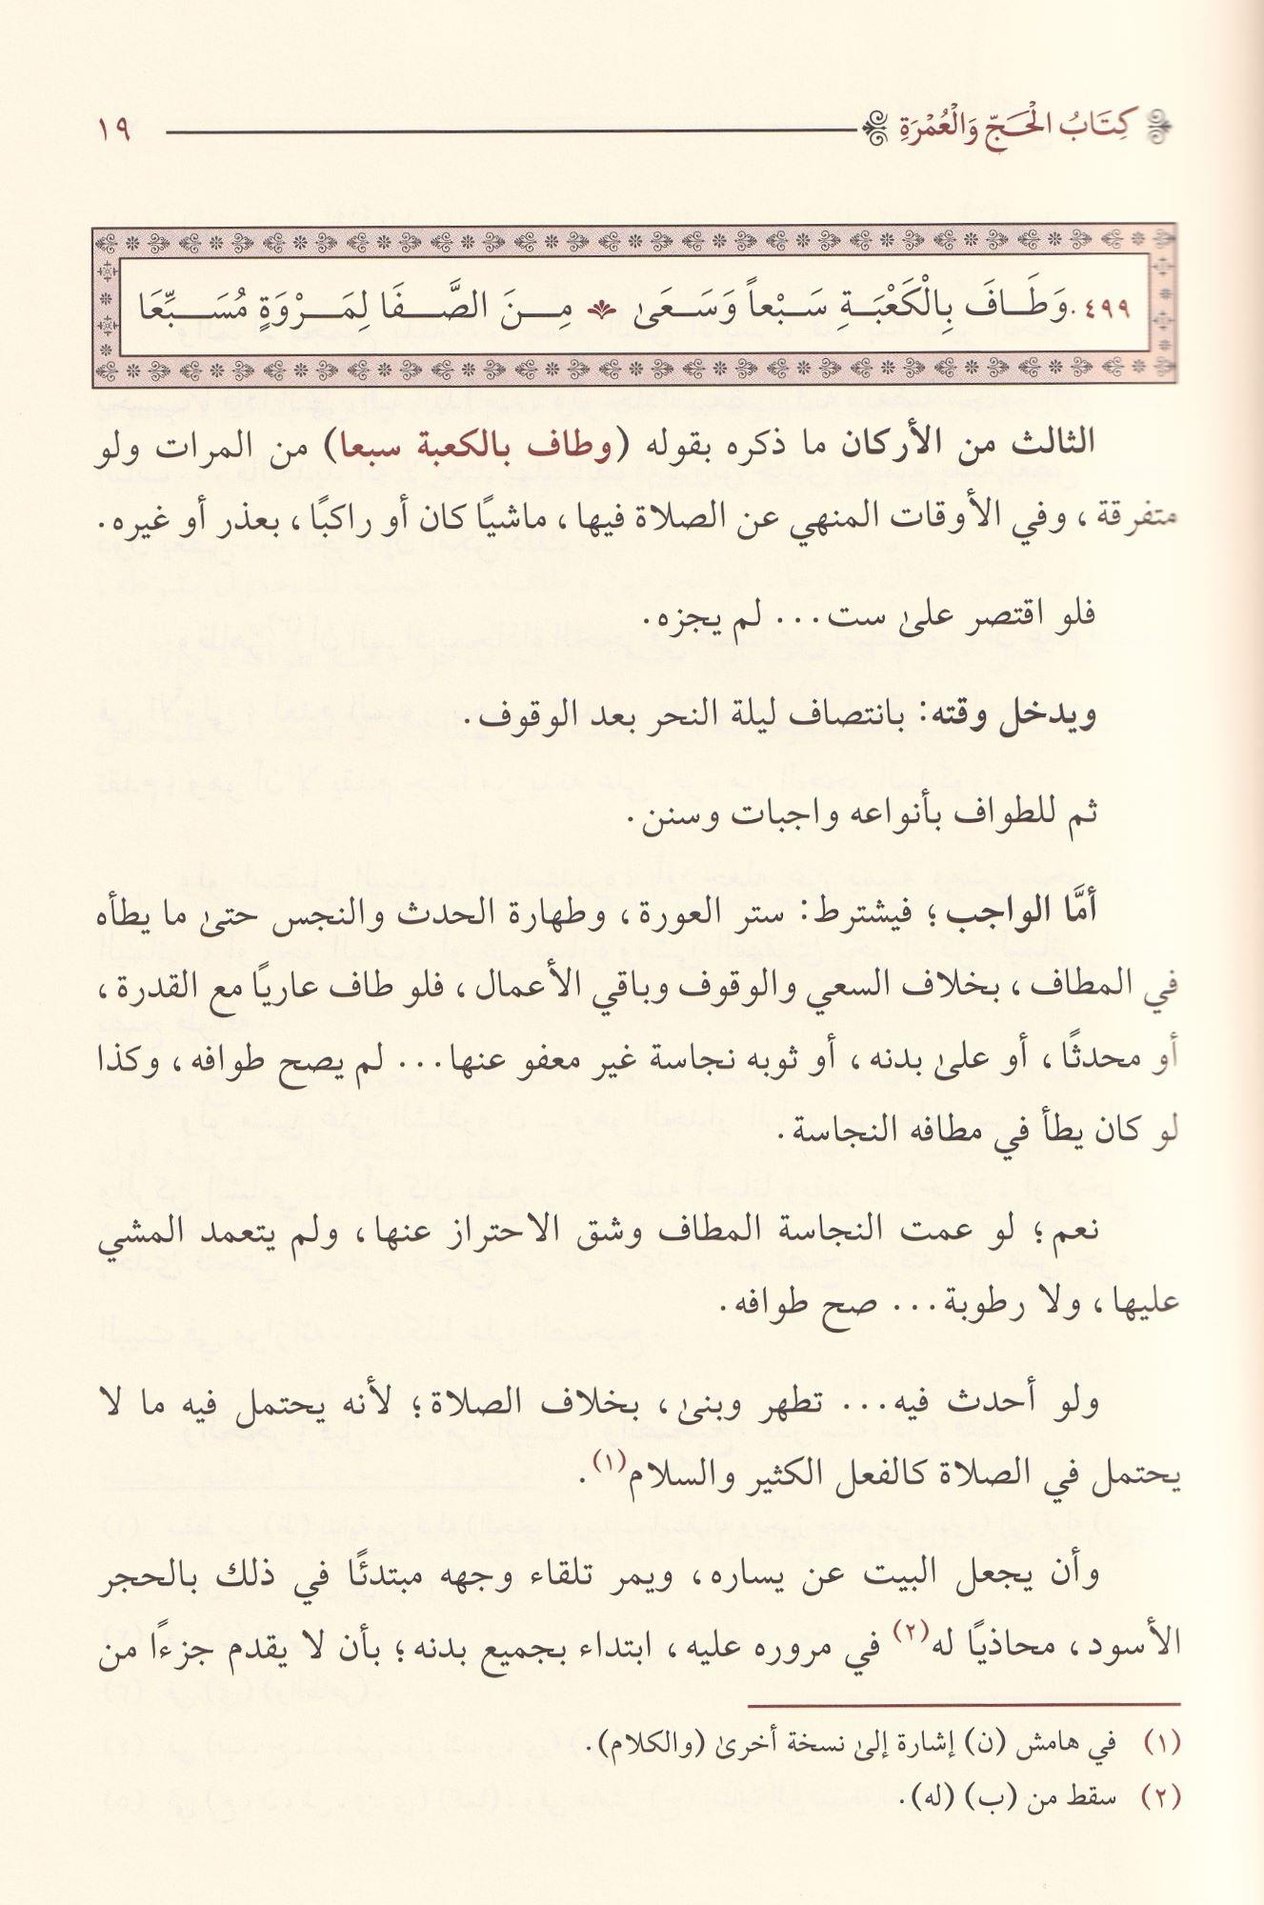 كِتَابُ الْحَجِّ وَالْعُمْرَةِ ١٩
٤٩٩. وَطَافَ بِالْكَعْبَةِ سَبْعاً وَسَعَىٰ مِنَ الصَّفَا لِمَرْوَةٍ مُسَبِّعَا
الثالث من الأركان ما ذكره بقوله (وطاف بالكعبة سبعا) من المرات ولو
متفرقة، وفي الأوقات المنهي عن الصلاة فيها، ماشيًا كان أو راكبًا، بعذر أو غيره.
فلو اقتصر علىٰ ست... لم يجزه.
ويدخل وقته: بانتصاف ليلة النحر بعد الوقوف.
ثم للطواف بأنواعه واجبات وسنن.
أمَّا الواجب؛ فيشترط: ستر العورة، وطهارة الحدث والنجس حتىٰ ما يطأه
في المطاف، بخلاف السعي والوقوف وباقي الأعمال، فلو طاف عاريًا مع القدرة،
أو محدثًا، أو علىٰ بدنه، أو ثوبه نجاسة غير معفو عنها... لم يصح طوافه، وكذا
لو كان يطأ في مطافه النجاسة.
نعم؛ لو عمت النجاسة المطاف وشق الاحتراز عنها، ولم يتعمد المشي
عليها، ولا رطوبة... صح طوافه.
ولو أحدث فيه... تطهر وبنىٰ، بخلاف الصلاة؛ لأنه يحتمل فيه ما لا
يحتمل في الصلاة كالفعل الكثير والسلام(١).
وأن يجعل البيت عن يساره، ويمر تلقاء وجهه مبتدئًا في ذلك بالحجر
الأسود، محاذيًا له(٢) في مروره عليه، ابتداء بجميع بدنه؛ بأن لا يقدم جزءًا من
(١) في هامش (ن) إشارة إلىٰ نسخة أخرىٰ (والكلام).
(٢) سقط من (ب) (له).